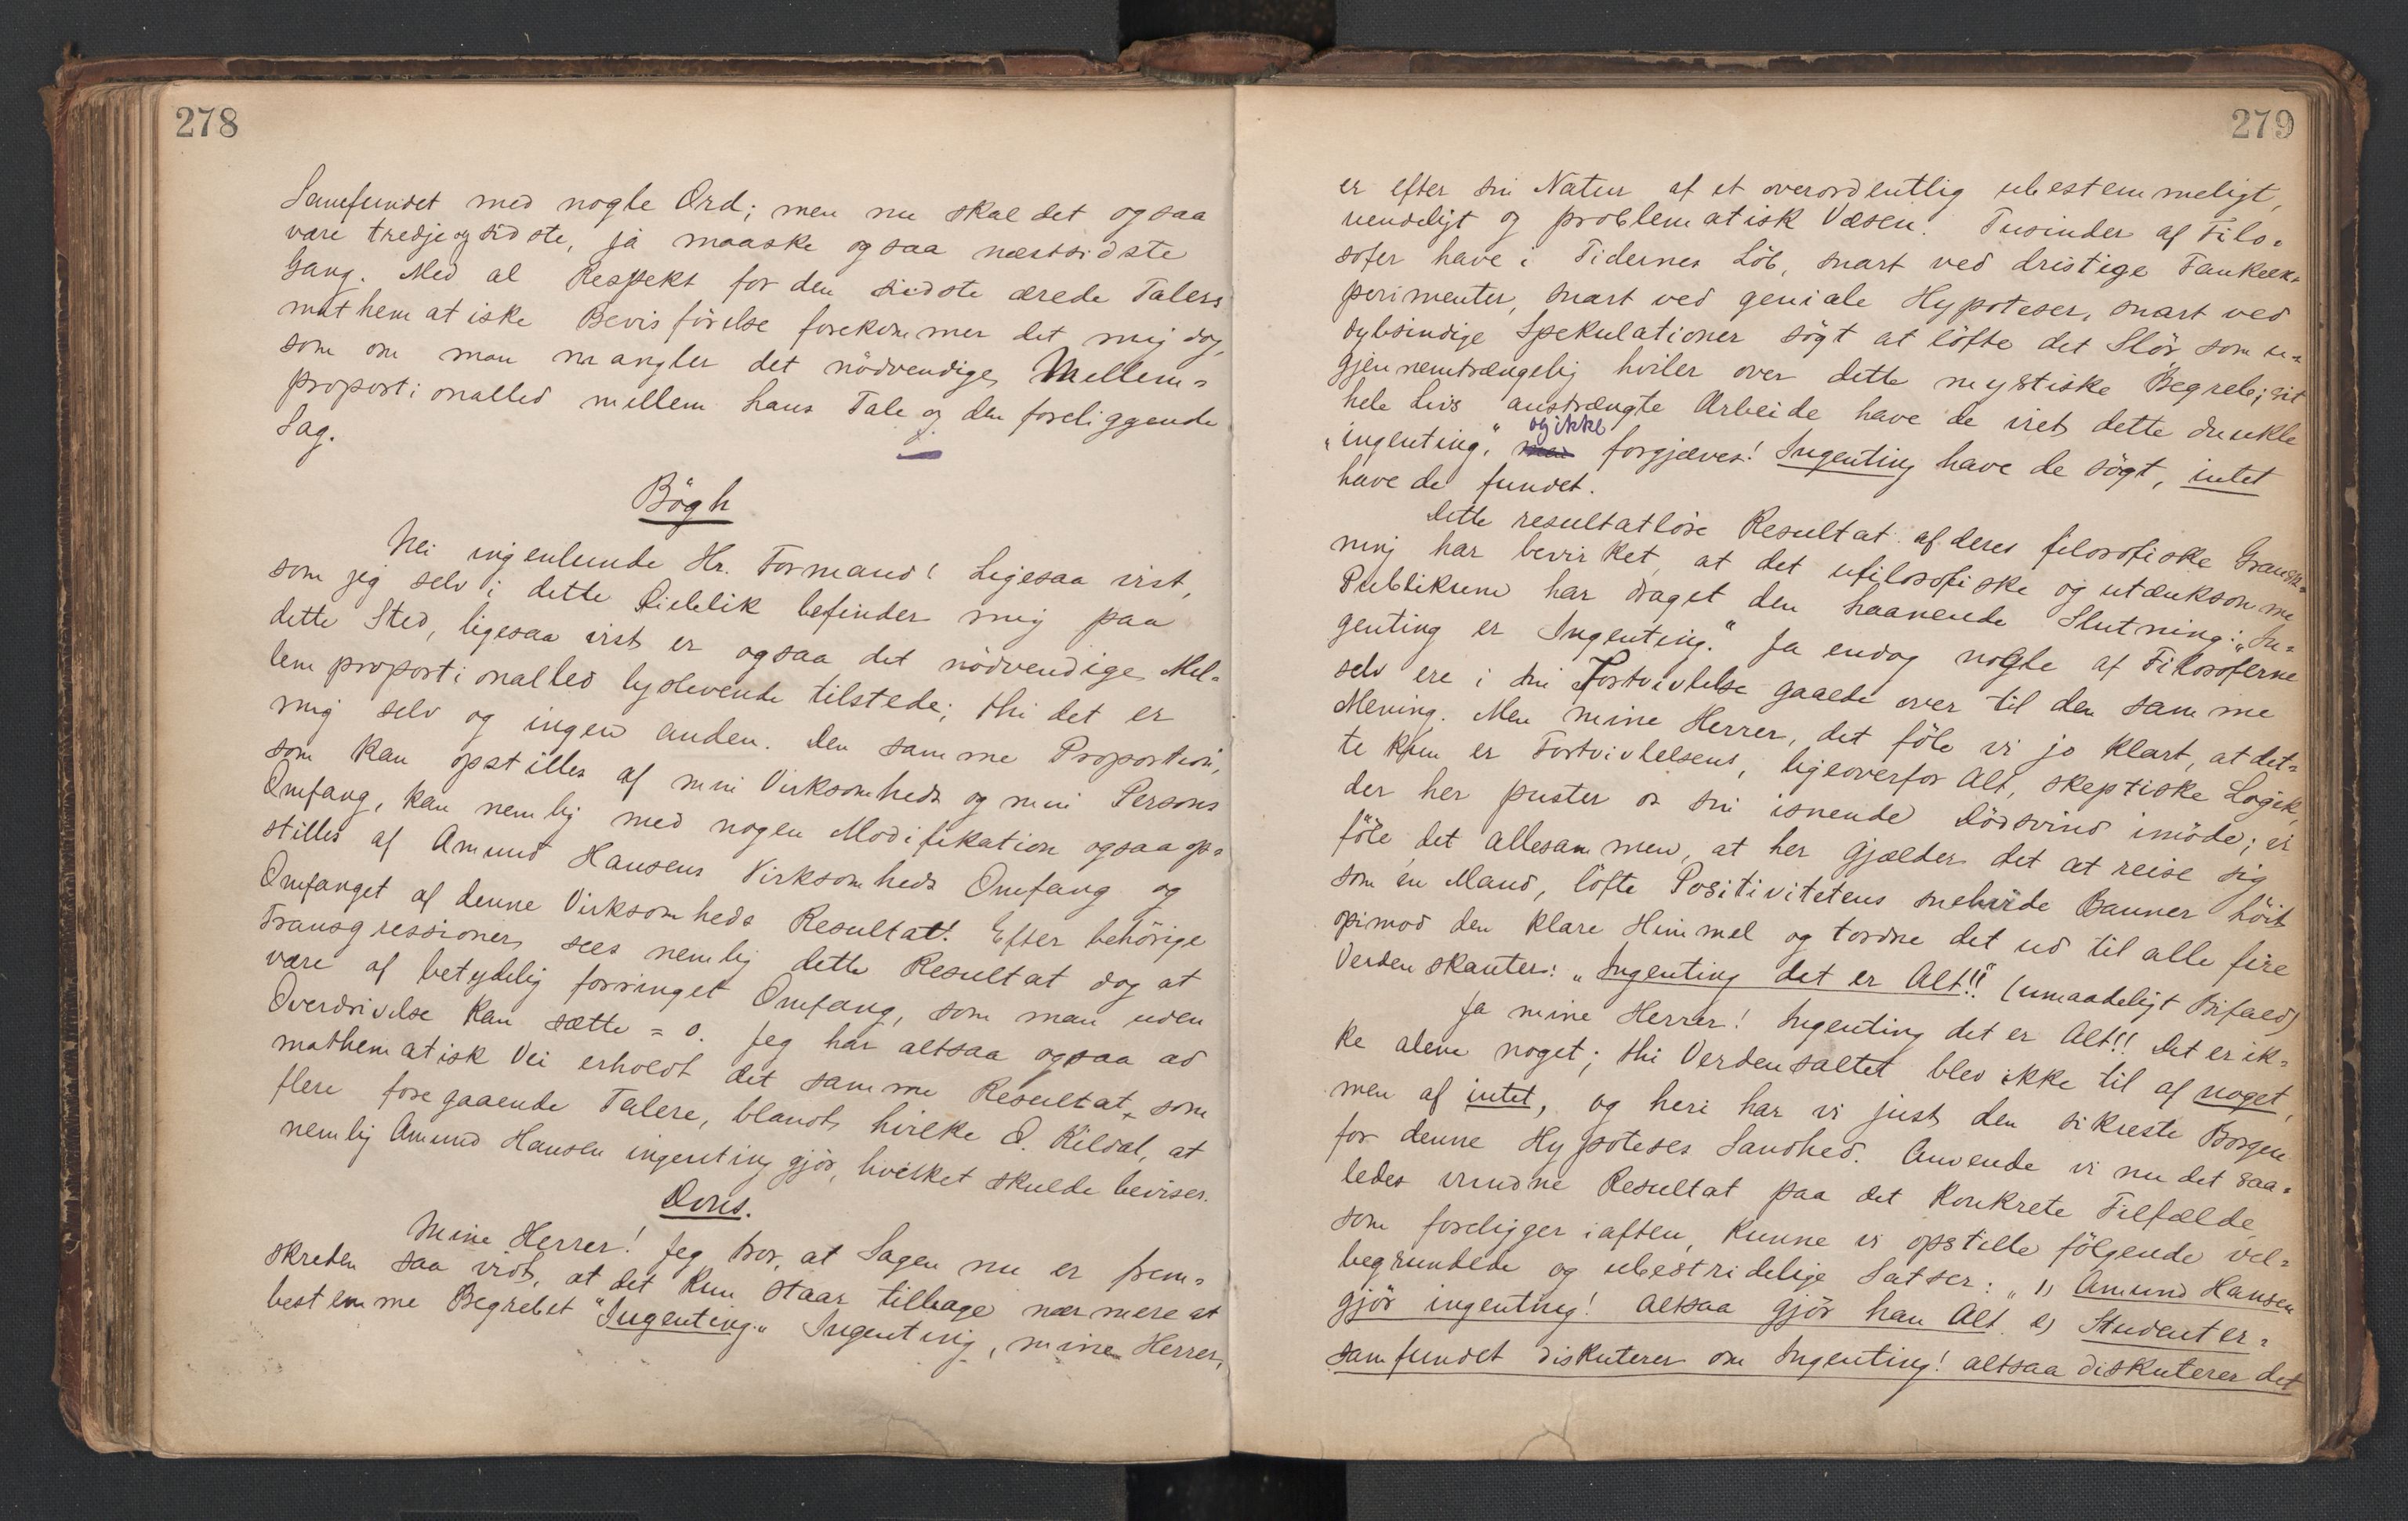 278
Samfundet med nogle Ord; men nu skal det ogsaa
være tredje og sidste, ja maaske ogsaa næstsidste
Gang. Med al Respekt for den sidste ærede Talers
mathematiske Bevisförelse forekommer det mig dog,
som om man mangler det nödvendige Mellem=
proportionalled mellem hans Tale og den foreliggende
Sag.
Bögh
Nei ingenlunde Hr. Formand! Ligesaa vist,
som jeg selv i dette Øieblik befinder mig paa
dette Sted, ligesaa vist er ogsaa det nödvendige Mel=
lemproportionalled lyslevende tilstede; thi det er
mig selv og ingen anden. Den samme Proportion,
som kan opstilles af min Virksomheds og min Persons
Omfang, kan nemlig med nogen Modifikation ogsaa op=
stilles af Amund Hansens Virksomheds Omfang og
Omfanget af denne Virksomheds Resultat! Efter behörige
Transgressioner sees nemlig dette Resultat dog at
være af betydelig forringet Omfang, som man uden
Overdrivelse kan sætte = 0. Jeg har altsaa ogsaa ad
mathematisk Vei erholdt det samme Resultat, som
flere foregaaende Talere, blandt hvilke O. Kildal, at
nemlig Amund Hansen ingenting gjör, hvilket skulde bevises.
Dons.
Mine Herrer! Jeg tror, at Sagen nu er frem=
skreden saa vidt, at det kun staar tilbage nærmere at
bestemme Begrebet "Ingenting." Ingenting, mine Herrer,
279
er efter sin Natur af et overordentlig ubestemmeligt,
uendeligt og problematisk Væsen. Tusinder af Filo=
sofer have i Tidernes Löb, snart ved dristige Tankeex=
perimenter, snart ved geniale Hypoteser, snart ved
dybsindige Spekulationer sögt at löfte det Slör som u=
gjennemtrængelig hviler over dette mystiske Begreb; sit
hele Livs anstrængte Arbeide have de viet dette dunkle
og ikke
"ingenting," men forgjæves! Ingenting have de sögt, intet
have de fundet.
Dette resultatlöse Resultat af deres filosofiske Gransk=
ning har bevirket, at det ufilosofiske og utænksomme
Publikum har draget den haanende Slutning: "In=
genting er Ingenting." Ja endog nogle af Filosoferne
selv ere i sin Fortvivlelse gaaede over til den samme
Mening. Men mine Herrer, det föle vi jo klart, at det=
te kun er Fortvivlelsens, ligeoverfor Alt, skeptiske Logik,
der her puster os sin isnende Dödsvind imöde; vi
föle det allesammen, at her gjælder det at reise sig
som én Mand, löfte Positivitetens snehvide Banner höit
opimod den klare Himmel og tordne det ud til alle fire
Verdenskanter: "Ingenting det er Alt!!" (umaadeligt Bifald)
Ja mine Herrer! Ingenting det er Alt!! Det er ik=
ke alene noget; thi Verdensaltet blev ikke til af noget,
men af intet, og heri har vi just den sikreste Borgen
for denne Hypoteses Sandhed. Anvende vi nu det saa=
ledes vundne Resultat paa det konkrete Tilfælde,
som foreligger iaften, kunne vi opstille fölgende vel=
begrundede og ubestridelige Satser: "1) Amund Hansen
gjör ingenting! altsaa gjör han Alt. 2) Studenter=
samfundet diskuterer om Ingenting! altsaa diskuterer det